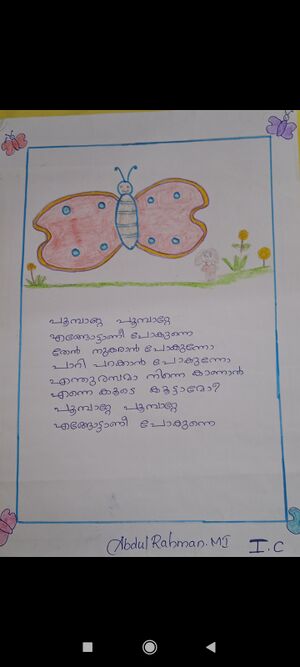 പൂമ്പാറ്റേ പൂമ്പാറ്റേ
എങ്ങോട്ടാണീ പോകുന്നെ
തേൻ നുകരാൻ പോകുന്നോ
പാറി പറക്കാൻ പോകുന്നോ
എന്തുരസമാ നിന്നെ കാണാൻ
എന്നെ കൂടെ കൂട്ടാമോ?
പൂമ്പാറ്റേ പൂമ്പാറ്റേ
എങ്ങോട്ടാണീ പോകുന്നെ
Abdul Rahman.MJ I.C